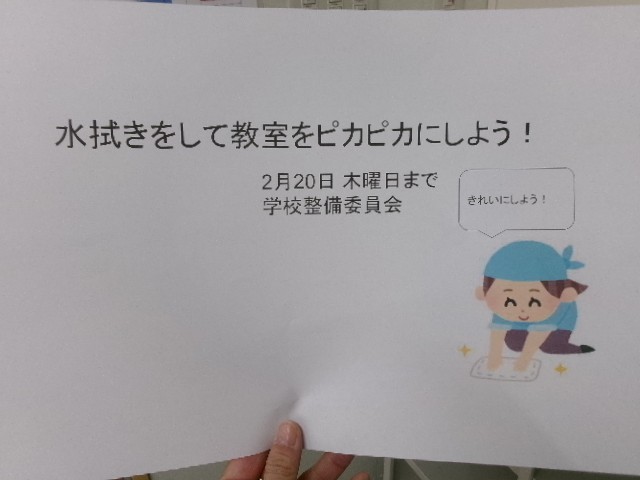 水拭きをして教室をピカピカにしよう！
2月20日 木曜日まで
学校整備委員会
きれいにしよう！